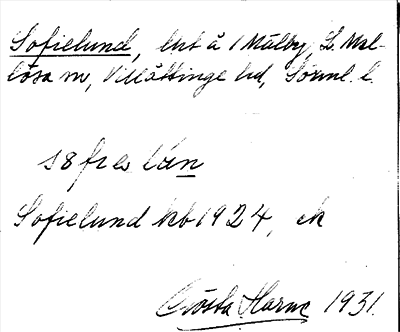 Sofielund, lht å 1 Målby, L. Mel-
lösa sn, Villåttinge hd, Sörml. l.
sofielún
Sofielund kb 1924, ek
Gösta Harne 1931.